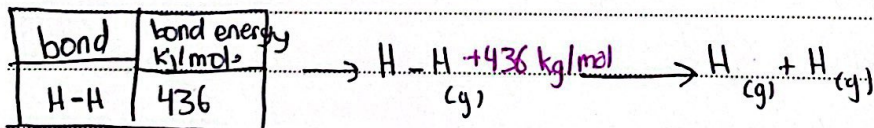 bond | bond energy kJ/mol.
H-H | 436
→ H-H +436 kg/mol → H + H
(g) (g) (g)